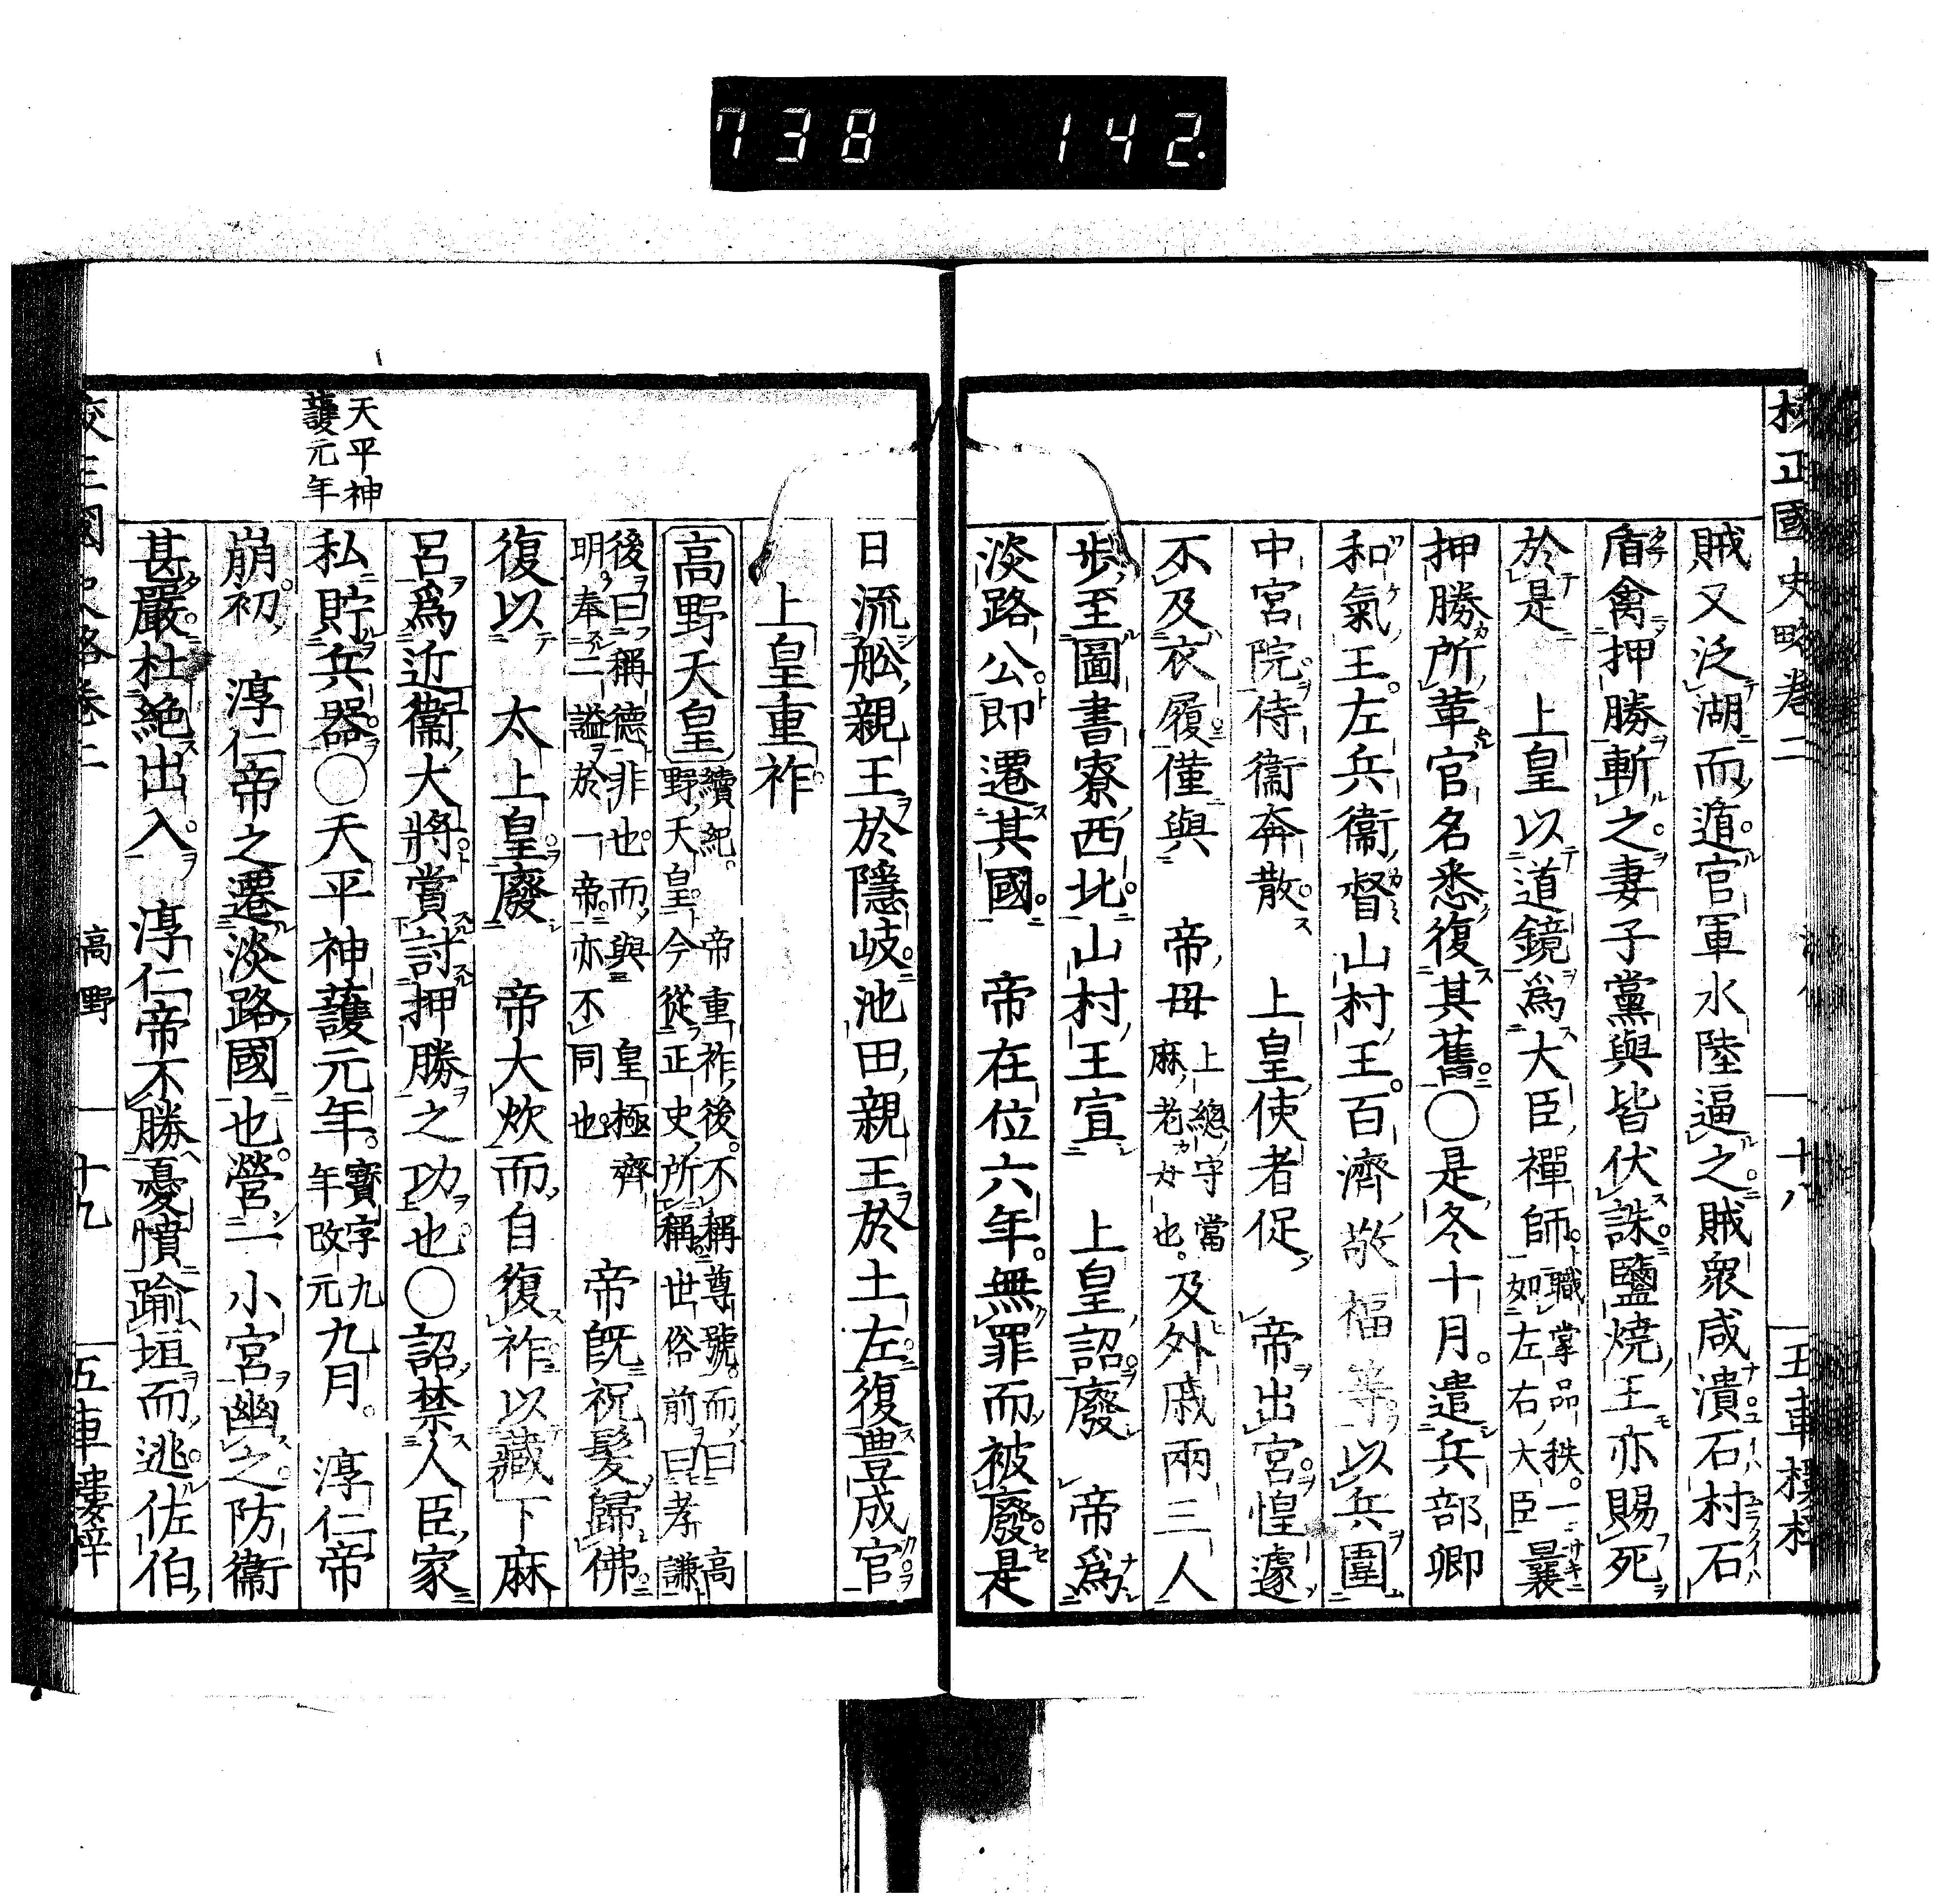 738 142.
校正國史略卷二 十八 五車樓梓
賊又泛湖而遁官軍水陸逼之賊衆咸潰石村石
盾禽押勝斬之妻子黨與皆伏誅鹽燒王亦賜死
於是 上皇以道鏡爲大臣禪師職掌品秩一如左右大臣曩
押勝所革官名悉復其舊○是冬十月遣兵部卿
和氣王左兵衞督山村王百濟敬福等以兵圍
中宮院待衞奔散 上皇使者促 帝出宮惶遽
不及衣履僅與 帝母上總守當麻老女也及外戚兩三人
歩至圖書寮西北山村王宣 上皇詔廢 帝爲
淡路公即遷其國 帝在位六年無罪而被廢是
日流舩親王於隱岐池田親王於土左復豊成官
上皇重祚
高野天皇 續紀高野天皇 帝重祚後不稱尊號而曰野天皇今從正史所稱世俗前曰孝謙
後曰稱德非也而與 皇極齊明奉二謚於一帝亦不同也 帝旣祝髮歸佛
復以 太上皇廢 帝大炊而自復祚以藏下麻
呂爲近衞大將賞討押勝之功也○詔禁人臣家
私貯兵器○天平神護元年寶字九年改元九月 淳仁帝
天平神護元年
崩初 淳仁帝之遷淡路國也營一小宮幽之防衞
甚嚴杜絕出入 淳仁帝不勝憂憤踰垣而逃佐伯
校正國史略卷二 高野 十九 五車樓梓